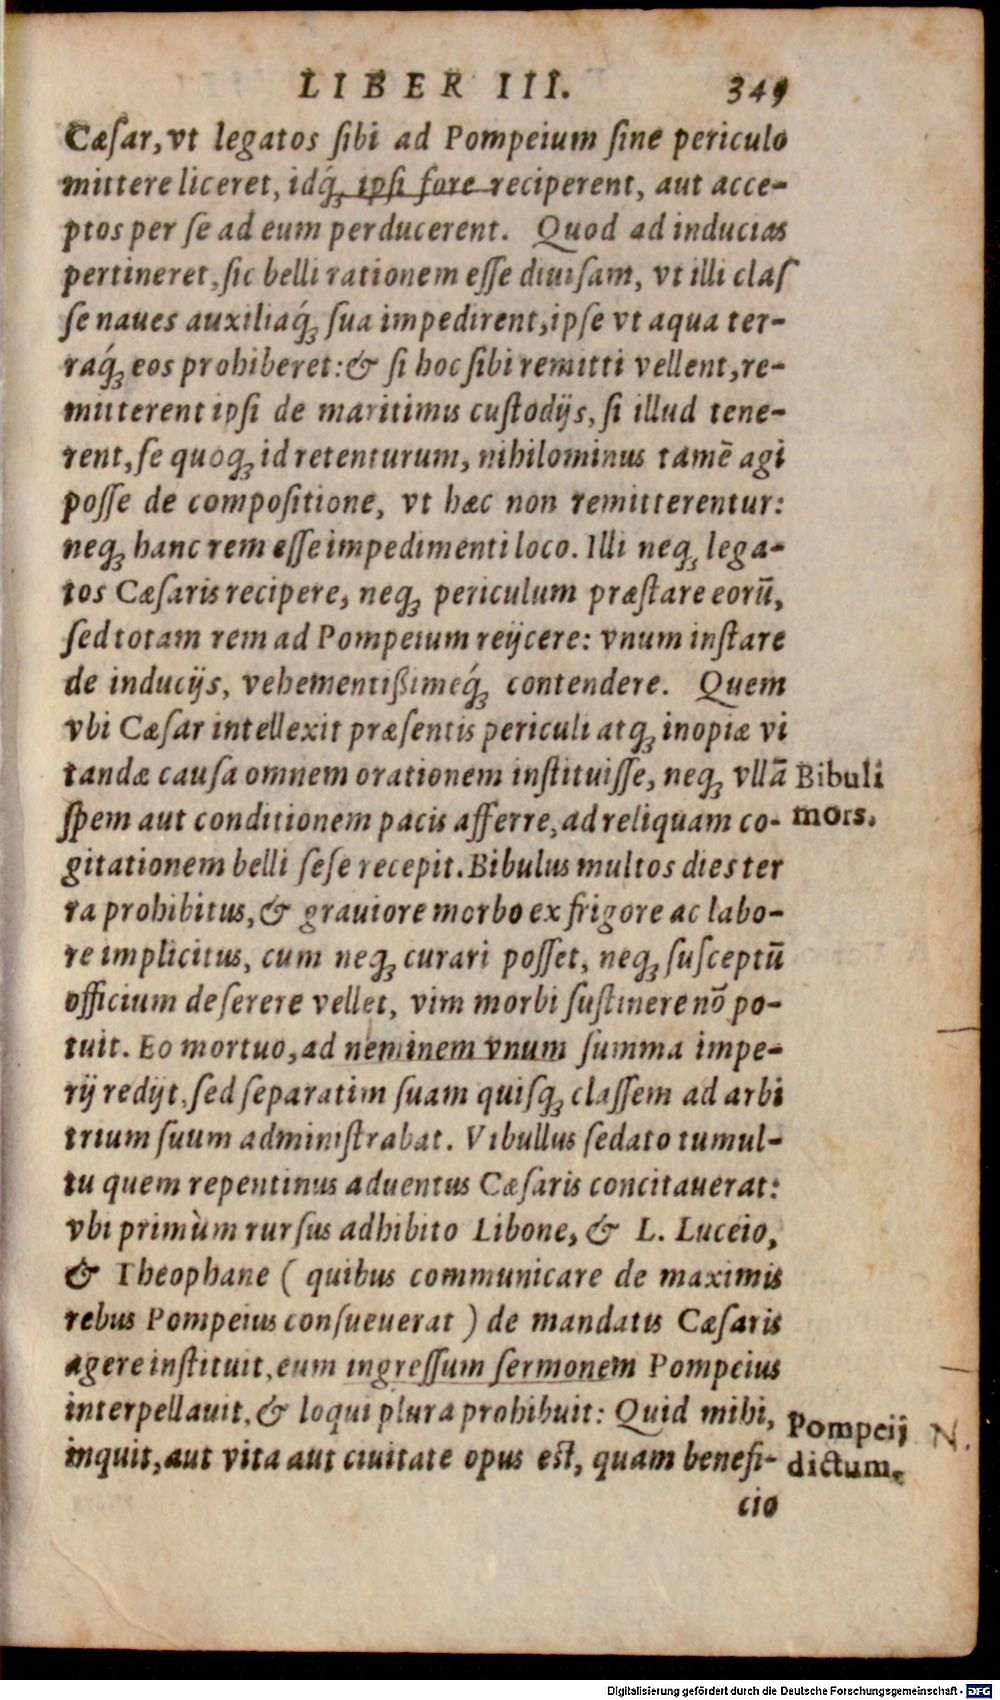 LIBER III. 349
Cæſar, vt legatos ſibi ad Pompeium ſine periculo
mittere liceret, idq́ꝫ ipſi fore reciperent, aut acce-
ptos per ſe ad eum perducerent. Quod ad inducias
pertineret, ſic belli rationem eſſe diuiſam, vt illi claſ
ſe naues auxiliaq́ꝫ ſua impedirent, ipſe vt aqua ter-
raq́ꝫ eos prohiberet: & ſi hoc ſibi remitti vellent, re-
mitterent ipſi de maritimis cuſtodijs, ſi illud tene-
rent, ſe quoqꝫ id retenturum, nihilominus tamẽ agi
poſſe de compoſitione, vt hæc non remitterentur:
neqꝫ hanc rem eſſe impedimenti loco. Illi neqꝫ lega-
tos Cæſaris recipere, neqꝫ periculum præſtare eorũ,
ſed totam rem ad Pompeium reijcere: vnum inſtare
de inducijs, vehementißimeq́ꝫ contendere. Quem
vbi Cæſar intellexit præſentis periculi atqꝫ inopiæ vi
tandæ cauſa omnem orationem inſtituiſſe, neqꝫ vllã
ſpem aut conditionem pacis afferre, ad reliquam co-
gitationem belli ſeſe recepit. Bibulus multos dies ter
ra prohibitus, & grauiore morbo ex frigore ac labo-
re implicitus, cum neqꝫ curari poſſet, neqꝫ ſuſceptũ
officium deſerere vellet, vim morbi ſuſtinere nõ po-
tuit. Eo mortuo, ad neminem vnum ſumma impe-
rij redijt, ſed ſeparatim ſuam quiſqꝫ claſſem ad arbi
trium ſuum adminiſtrabat. Vibullus ſedato tumul-
tu quem repentinus aduentus Cæſaris concitauerat:
vbi primùm rurſus adhibito Libone, & L. Luceio,
& Theophane ( quibus communicare de maximis
rebus Pompeius conſueuerat ) de mandatis Cæſaris
agere inſtituit, eum ingreſſum ſermonem Pompeius
interpellauit, & loqui plura prohibuit: Quid mihi,
inquit, aut vita aut ciuitate opus eſt, quam benefi-
cio
Bibuli
mors.
Pompeij
dictum.
N.
Digitalisierung gefördert durch die Deutsche Forschungsgemeinschaft - DFG